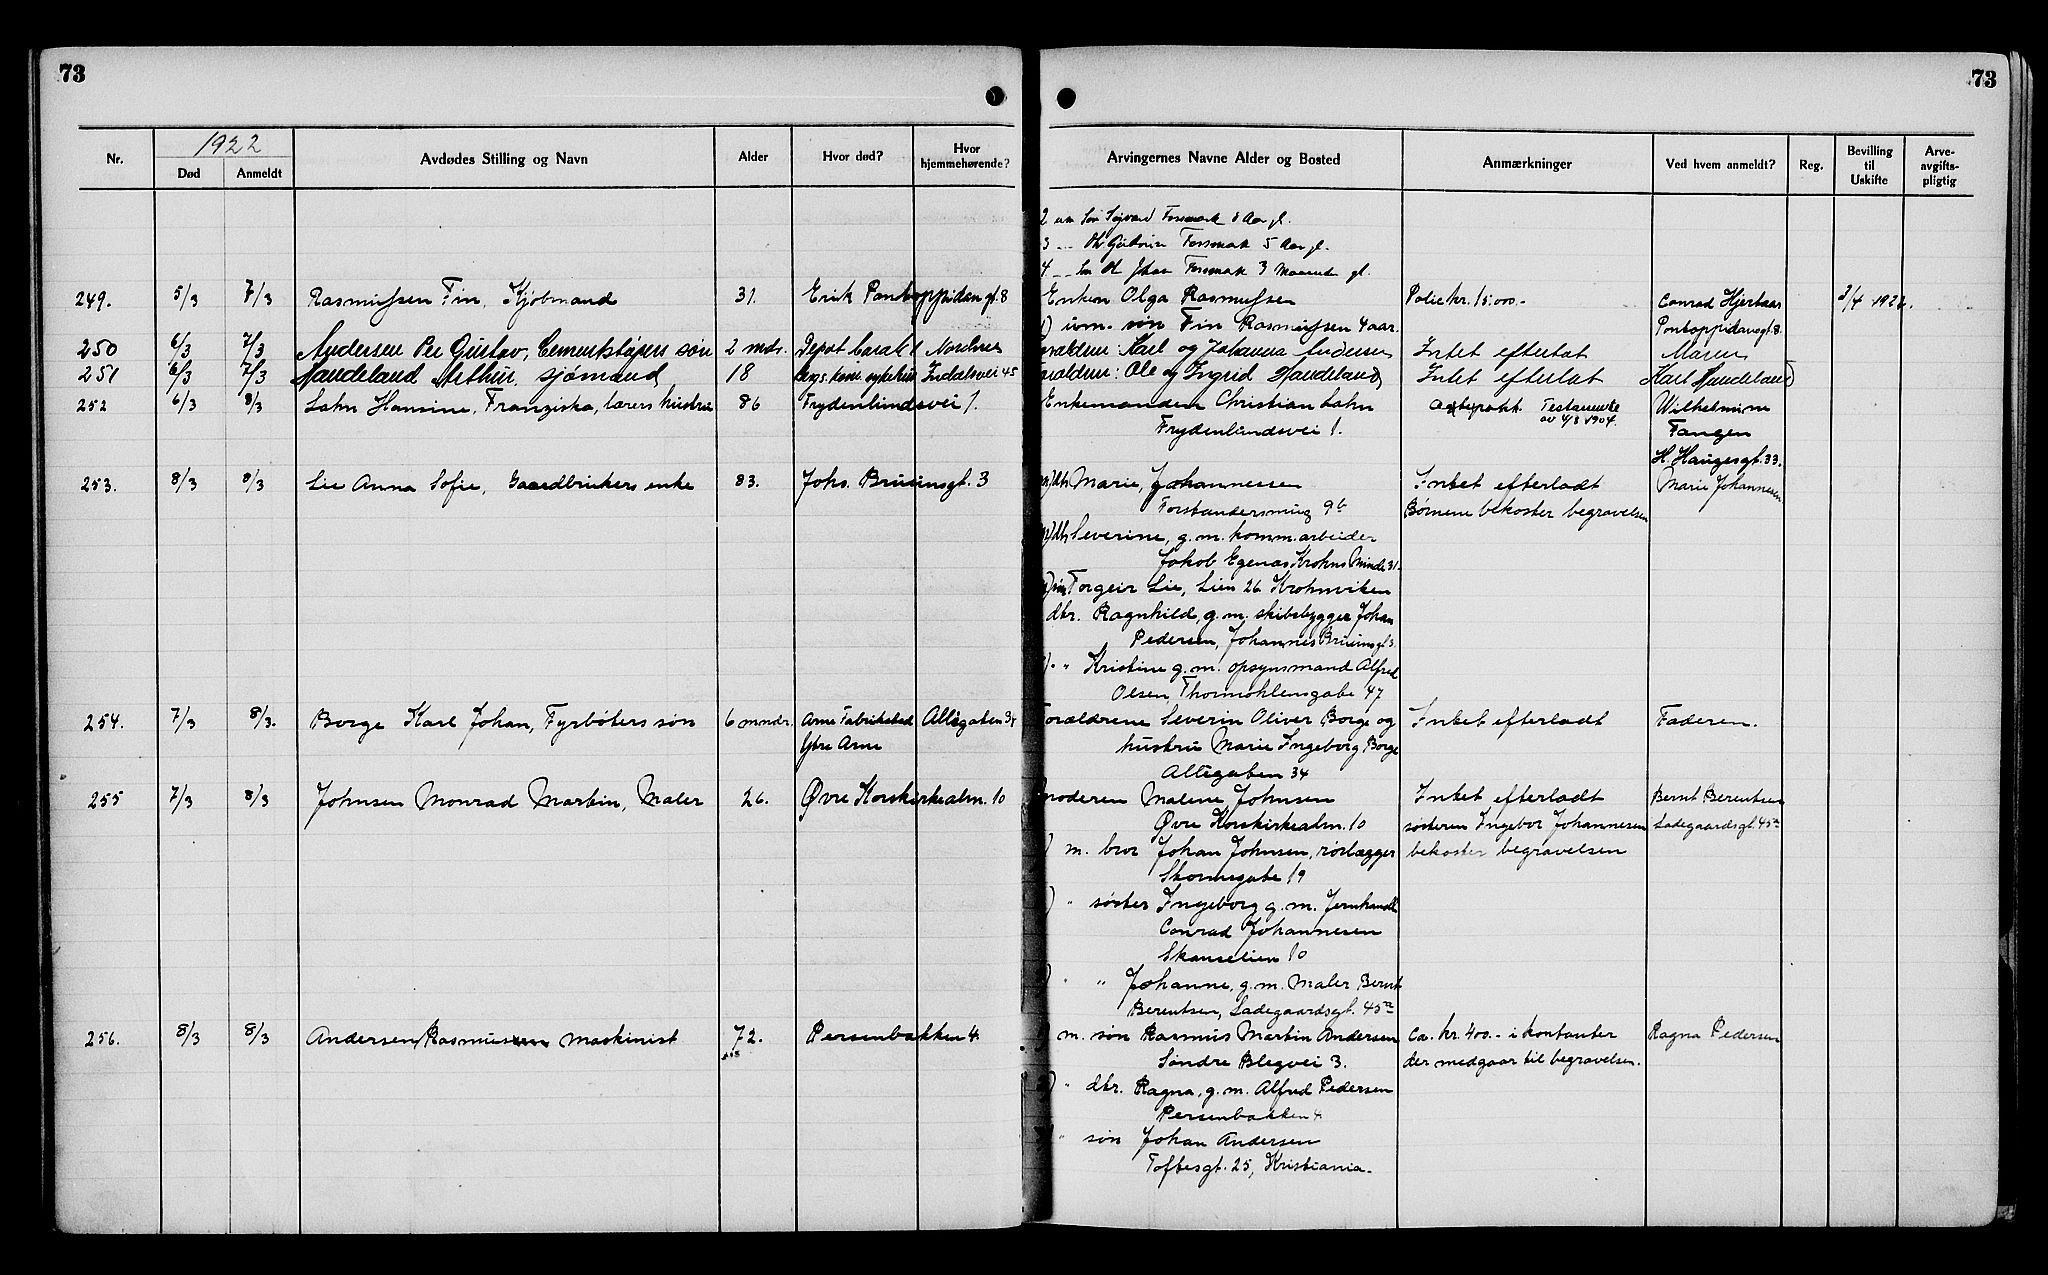 73
73
1922
Nr.
Død
Anmeldt
Avdødes Stilling og Navn
Alder
Hvor død?
Hvor hjemmehørende?
Arvingernes Navne Alder og Bosted
Anmærkninger
Ved hvem anmeldt?
Reg.
Bevilling til Uskifte
Arve-avgifts-pligtig
2 um Søn Sigvard Forsmark 8 Aar gl.
3 Forsmark 5 Aar gl.
4 Forsmark 3 Maaneder gl.
249. 5/3 7/3 Rasmussen Fin, Kjøbmand 31. Erik Pontoppidan gt. 8 Enken Olga Rasmussen Police kr. 15.000.- Conrad Hjertaas 3/4 1922.
um. søn Fin Rasmussen 4 aar. Pontoppidansgt. 8.
250 6/3 7/3 Andersen Per Gustav, Cementstøpers søn 2 mdr. Depot barak 1 Nordnes Forældrene: Karl og Johanna Andersen Intet efterlat Maren
251 6/3 7/3 Haudeland Arthur, sjømand 18 Indalsvei 45 Forældrene: Ole og Ingrid Haudeland Intet efterlat Karl Haudeland
252 6/3 8/3 Lahn Hansine, Franziska, lærers hustru 86 Frydenlundsvei 1. Enkemanden Christian Lahn Testamente Wilhelmine
Frydenlundsvei 1. av 4/8 1904. Fangen
H. Haugesgt. 33.
253. 8/3 8/3 Lie Anna Sofie, Gaardbrukers enke 83. Johs. Bruunsgt. 3 dtr Marie, Johannessen Intet efterladt Marie Johannesen
Forstandersmug 9b Børnene bekoster begravelsen
dtr Severine, g.m. komm.arbeider
Jakob Egenas Krohns Minde 31.
søn Torgeir Lie, Lien 26 Krohnviken
dtr. Ragnhild, g.m. skibsbygger Johan
Pedersen, Johannes Bruunsgt 3.
" Kristine g.m. opsynsmand Alfred
Olsen, Thormøhlensgate 47
254. 7/3 8/3. Borge Karl Johan, Fyrbøters søn 6 mndr. Arne Fabrikssted Allégaten 34 Forældrene Severin Oliver Borge og Intet efterladt Faderen.
Ytre Arne hustru Marie Ingeborg Borge
Allégaten 34
255 7/3 8/3 Johnsen Monrad Martin, Maler 26. Øvre Korskirkealm. 10 moderen Malene Johnsen Intet efterladt Bernt Berentsen
Øvre Korskirkealm. 10 søsteren Ingebor Johannesen Ladegaardsgt. 45a
m. bror Johan Johnsen, rørlægger bekoster begravelsen
Skottegate 19
" søster Ingeborg g.m. Jernhandler
Conrad Johannesen
Skanselien 10
" " Johanne, g.m. Maler Bernt
Berentsen, Ladegaardsgt. 45a
256. 8/3 8/3 Andersen Rasmus Maskinist 72. Persenbakken 4. m. søn Rasmus Martin Andersen ca. kr. 400.- i kontanter Ragna Pedersen
Søndre Blegvei 3. der medgaar til begravelsen.
" dtr. Ragna, g.m. Alfred Pedersen
Persenbakken 4
" søn Johan Andersen
Toftesgt. 25, Kristiania.